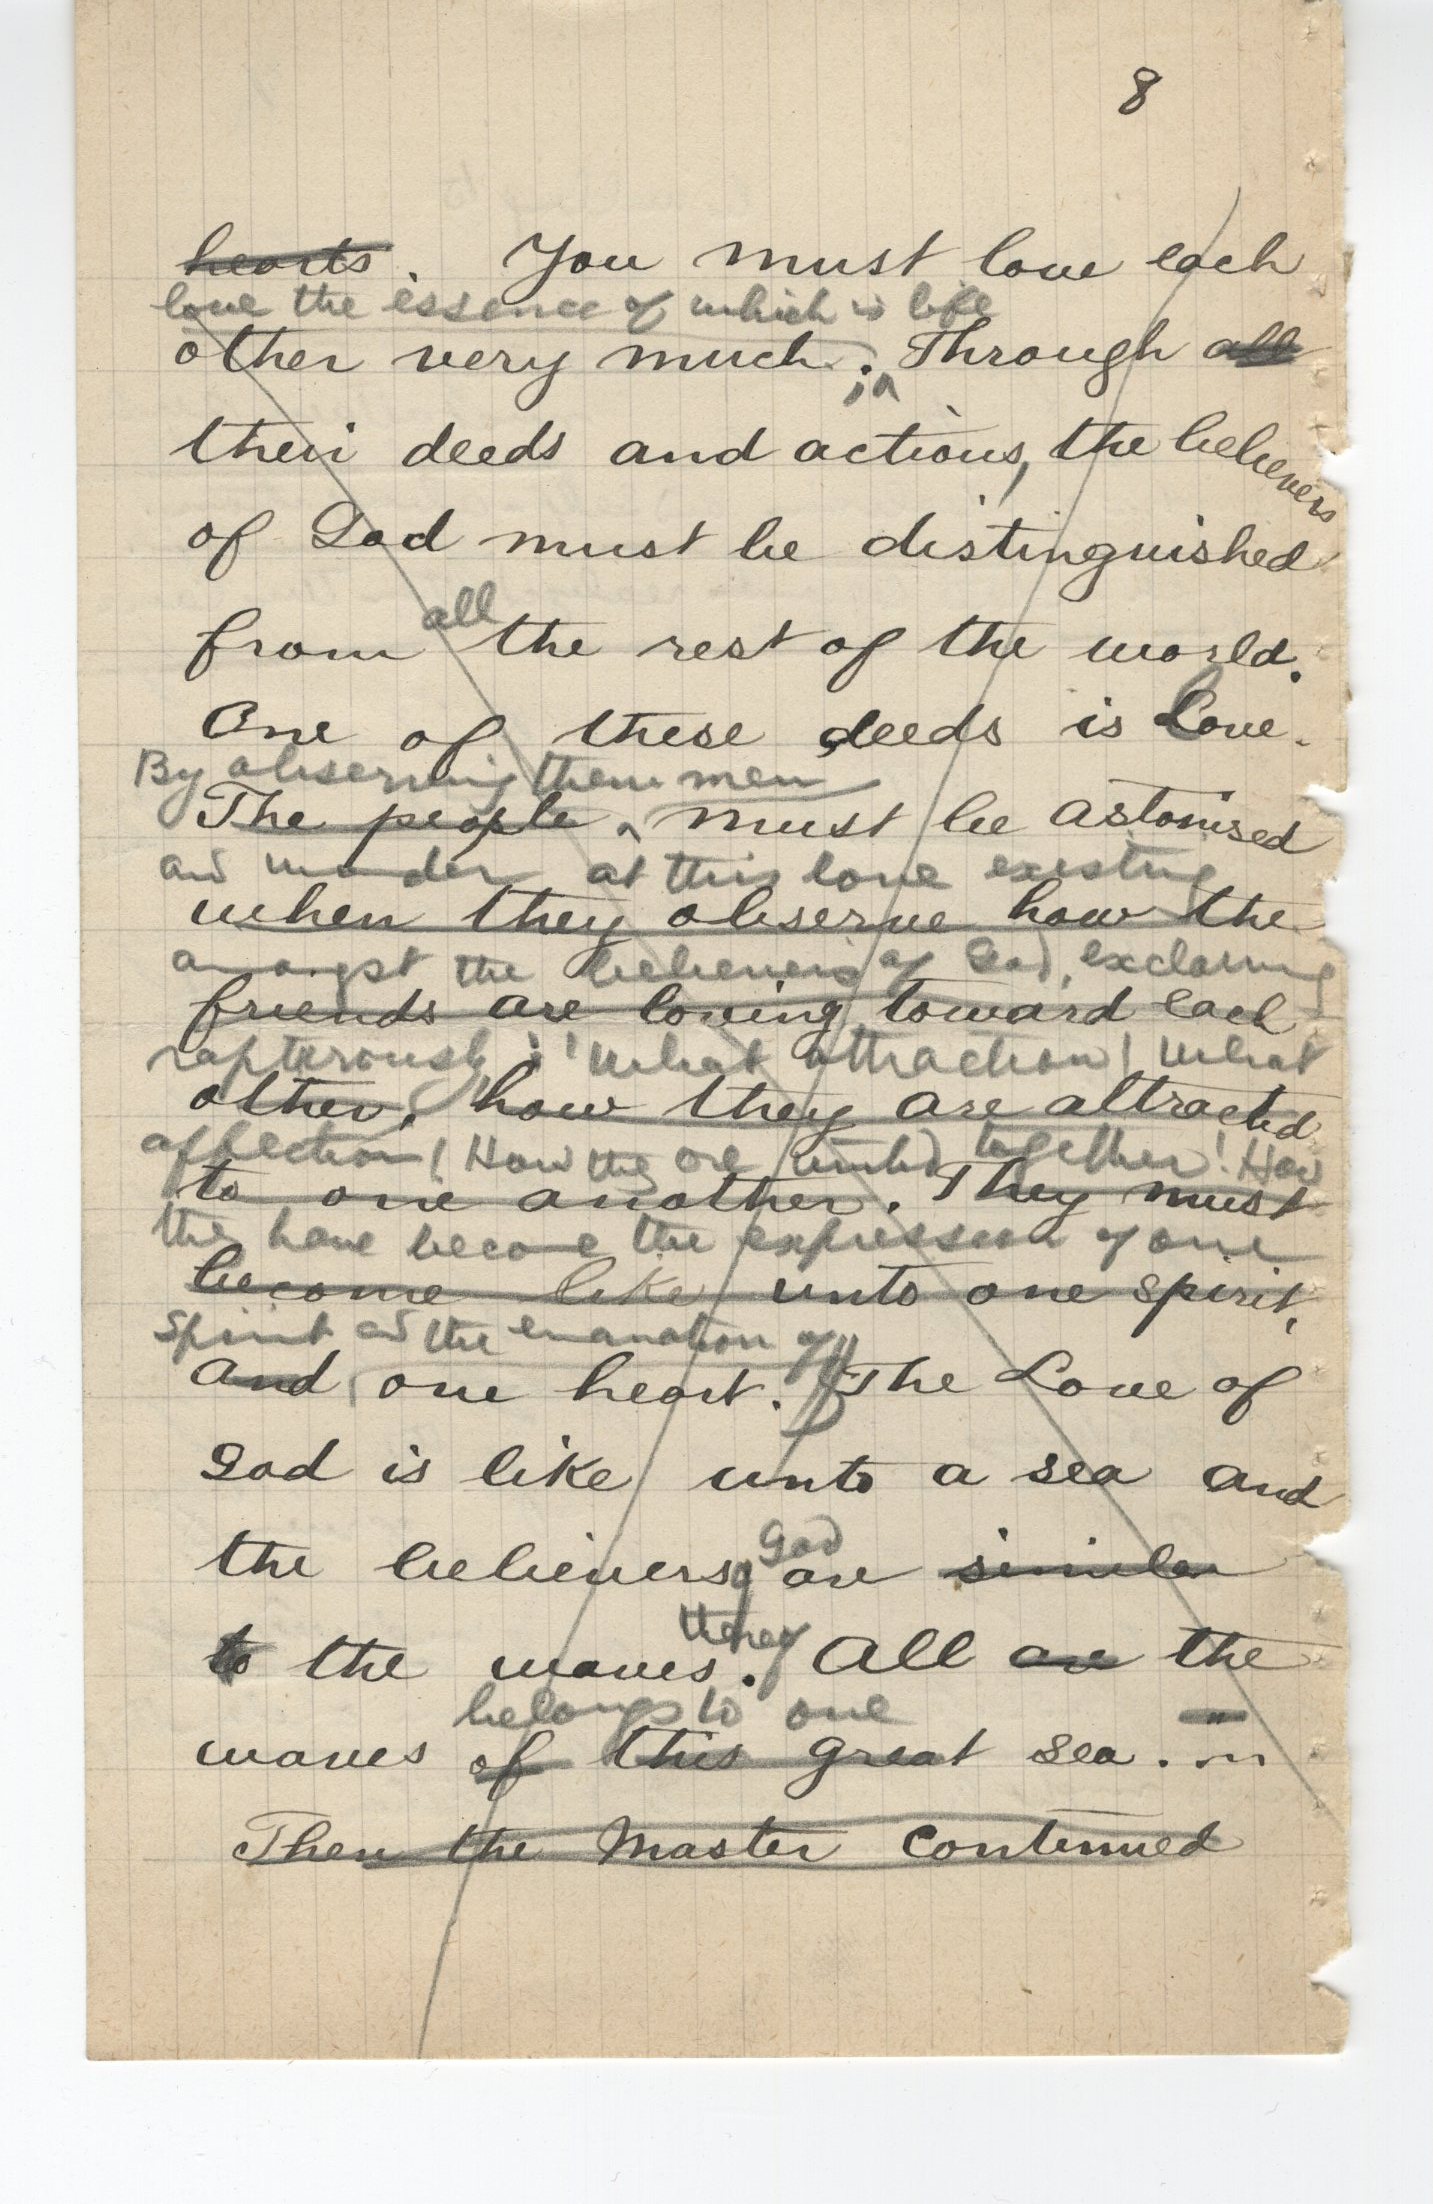 8
hearts. You must love each
love the essence of which is life
other very much. Through all
; in
their deeds and actions, the believers
of God must be distinguished
all
from the rest of the world.
One of these deeds is Love.
By observing them men
The people must be astonised
and wonder at this love existing
when they observe how the
amongst the believers of God, exclaiming
friends are loving toward each
rapturously: "What attraction! What
other, how they are attracted
affection! How they are united together! How
to one another. They must
they have become the expression of one
become like unto one spirit,
spirit and the emanation of
and one heart. The Love of
God is like unto a sea and
God
the believers of are similar
they
to the waves. All are the
belongs to one
waves of this great sea. "
Then the Master continued